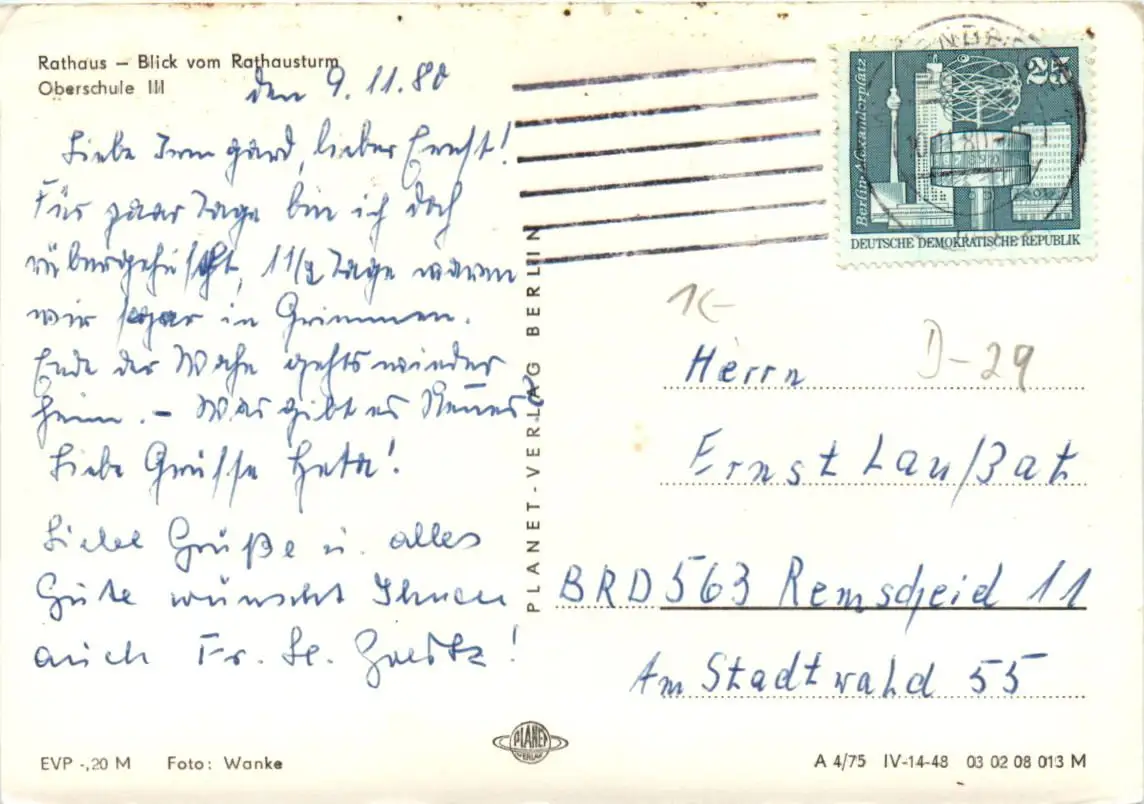 Rathaus – Blick vom Rathausturm
Oberschule III
den 9. 11. 80
Liebe Irmgard, lieber Ernst!
Für paar Tage bin ich doch
rübergehuscht, 1 1/2 Tage waren
wir sogar in Grimmen.
Ende der Woche gehts wieder
heim. – Was gibt es Neues?
Liebe Grüsse Herta!
Liebe Grüße u. alles
Gute wünscht Ihnen
auch Fr.
PLANET-VERLAG BERLIN
Berlin-Alexanderplatz
25
DEUTSCHE DEMOKRATISCHE REPUBLIK
D-29
Herrn
Ernst Laußat
BRD 563 Remscheid 11
Am Stadtwald 55
PLANET
VERLAG
EVP -,20 M Foto: Wanke
A 4/75 IV-14-48 03 02 08 013 M